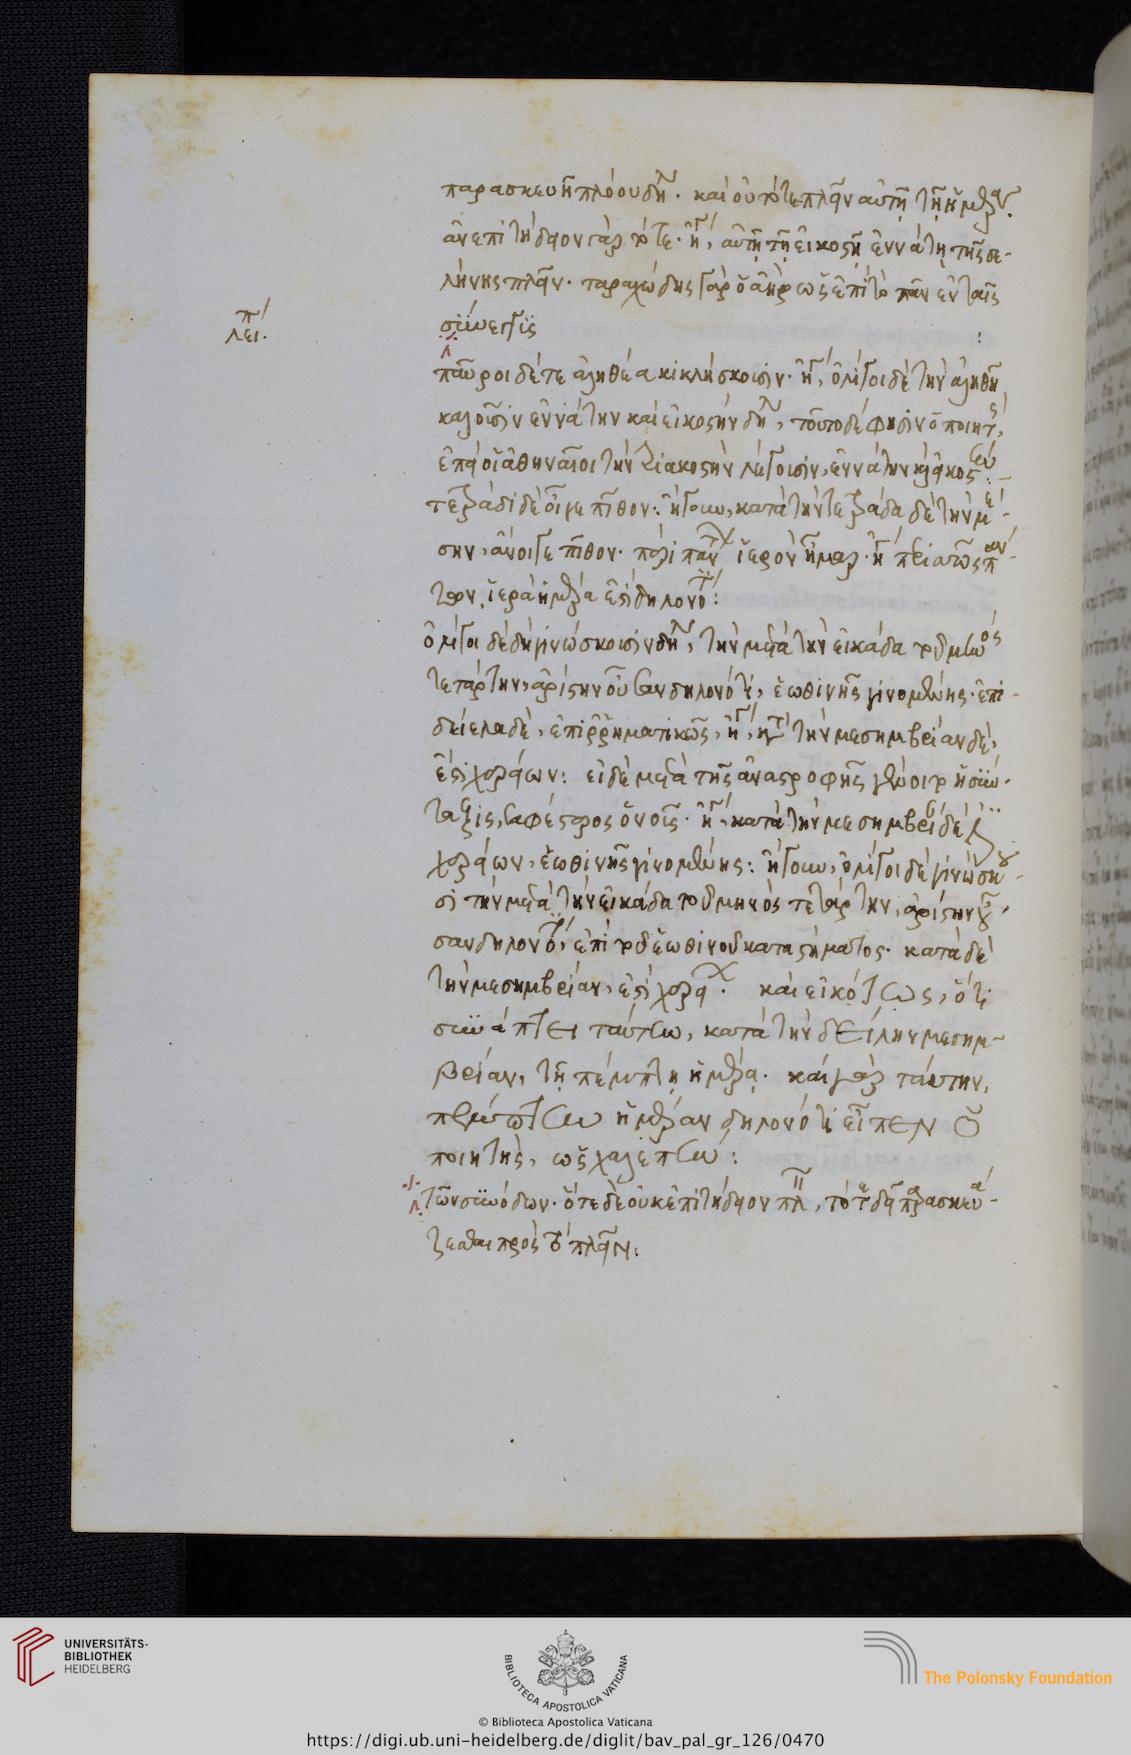 παρασκευῆ πλόου δηλ. καὶ οὐ τότε πλεῖν αὐτῇ τῇ ἡμέραν.
ἀνεπιτήδειον γὰρ τότε. ἢ, αὐτῇ τῇ εἰκοστῇ ἐννάτῃ τῆς σε-
λήνης πλεῖν. ταραχώδης γὰρ ὁ ἀὴρ ὡς ἐπὶ τὸ πᾶν ἐν ταῖς
συνερ
λει.
παῦροι δέ τε ἀληθέα κικλήσκουσιν. ἢ, ὀλίγοι δὲ τὴν ἀληθῆ
καλοῦσιν ἐννάτην καὶ εἰκοστὴν δηλ, τοῦτο δέ φησιν ὁ ποιητ,
οἱ ἀθηναῖοι τὴν λέγουσιν, ἐννάτην
τετράδι δὲ οἶγε πίθον: ἤγουν, κατὰ τὴν τετράδα δὲ τὴν με-
σην, ἄνοιγε πίθον. περὶ πάντ ἱερὸν ἦμαρ. ἢ
των, ἱερὰ ἡμέρα ἐστὶ δηλονότι:
ὀλίγοι δὲ δὴ γινώσκουσιν δηλ, τὴν μετὰ τὴν εἰκάδα τοῦ μηνὸς
τετάρτην, ἀρίστην οὖσαν δηλονότι, ἑωθινῆς γινομένης. ἐπὶ
δείελα δὲ, ἐπιρρηματικῶς, ἢ, τὴν μεσημβρίαν δὲ,
ἐστὶ χερείων: εἰ δὲ μετὰ τῆς ἀναστροφῆς γένοιτο ἡ σύν-
ταξις, σαφέστερος ὁ νοῦς. ἢ, κατὰ τὴν μεσημβρί δὲ
χερείων, ἑωθινῆς γινομένης: ἤγουν, ὀλίγοι δὲ γινώσκου-
σι τὴν μετὰ τὴν εἰκάδα τοῦ μηνὸς τετάρτην, ἀρίστην οὖ-
σαν δηλονότι, ἐπὶ τοῦ ἑωθινοῦ καταστήματος. κατὰ δὲ
τὴν μεσημβρίαν, ἐστὶ χερεί. καὶ εἰκότως, ὅτι
συνάπτει ταύτην, κατὰ τὴν δείλην μεσημ-
βρίαν, τῇ πέμπτῃ ἡμέρᾳ. καὶ γὰρ ταύτην,
πέμπτην ἡμέραν δηλονότι εἶπεν ὁ
ποιητὴς, ὡς χαλεπήν:
τῶν συνόδων. ὅτε δὲ οὐκ ἐπιτήδειον πλ, τότε δεῖ παρασκευά-
ζεσθαι πρὸς τὸ πλεῖν:
UNIVERSITÄTS-
BIBLIOTHEK
HEIDELBERG
BIBLIOTECA APOSTOLICA VATICANA
The Polonsky Foundation
© Biblioteca Apostolica Vaticana
https://digi.ub.uni-heidelberg.de/diglit/bav_pal_gr_126/0470